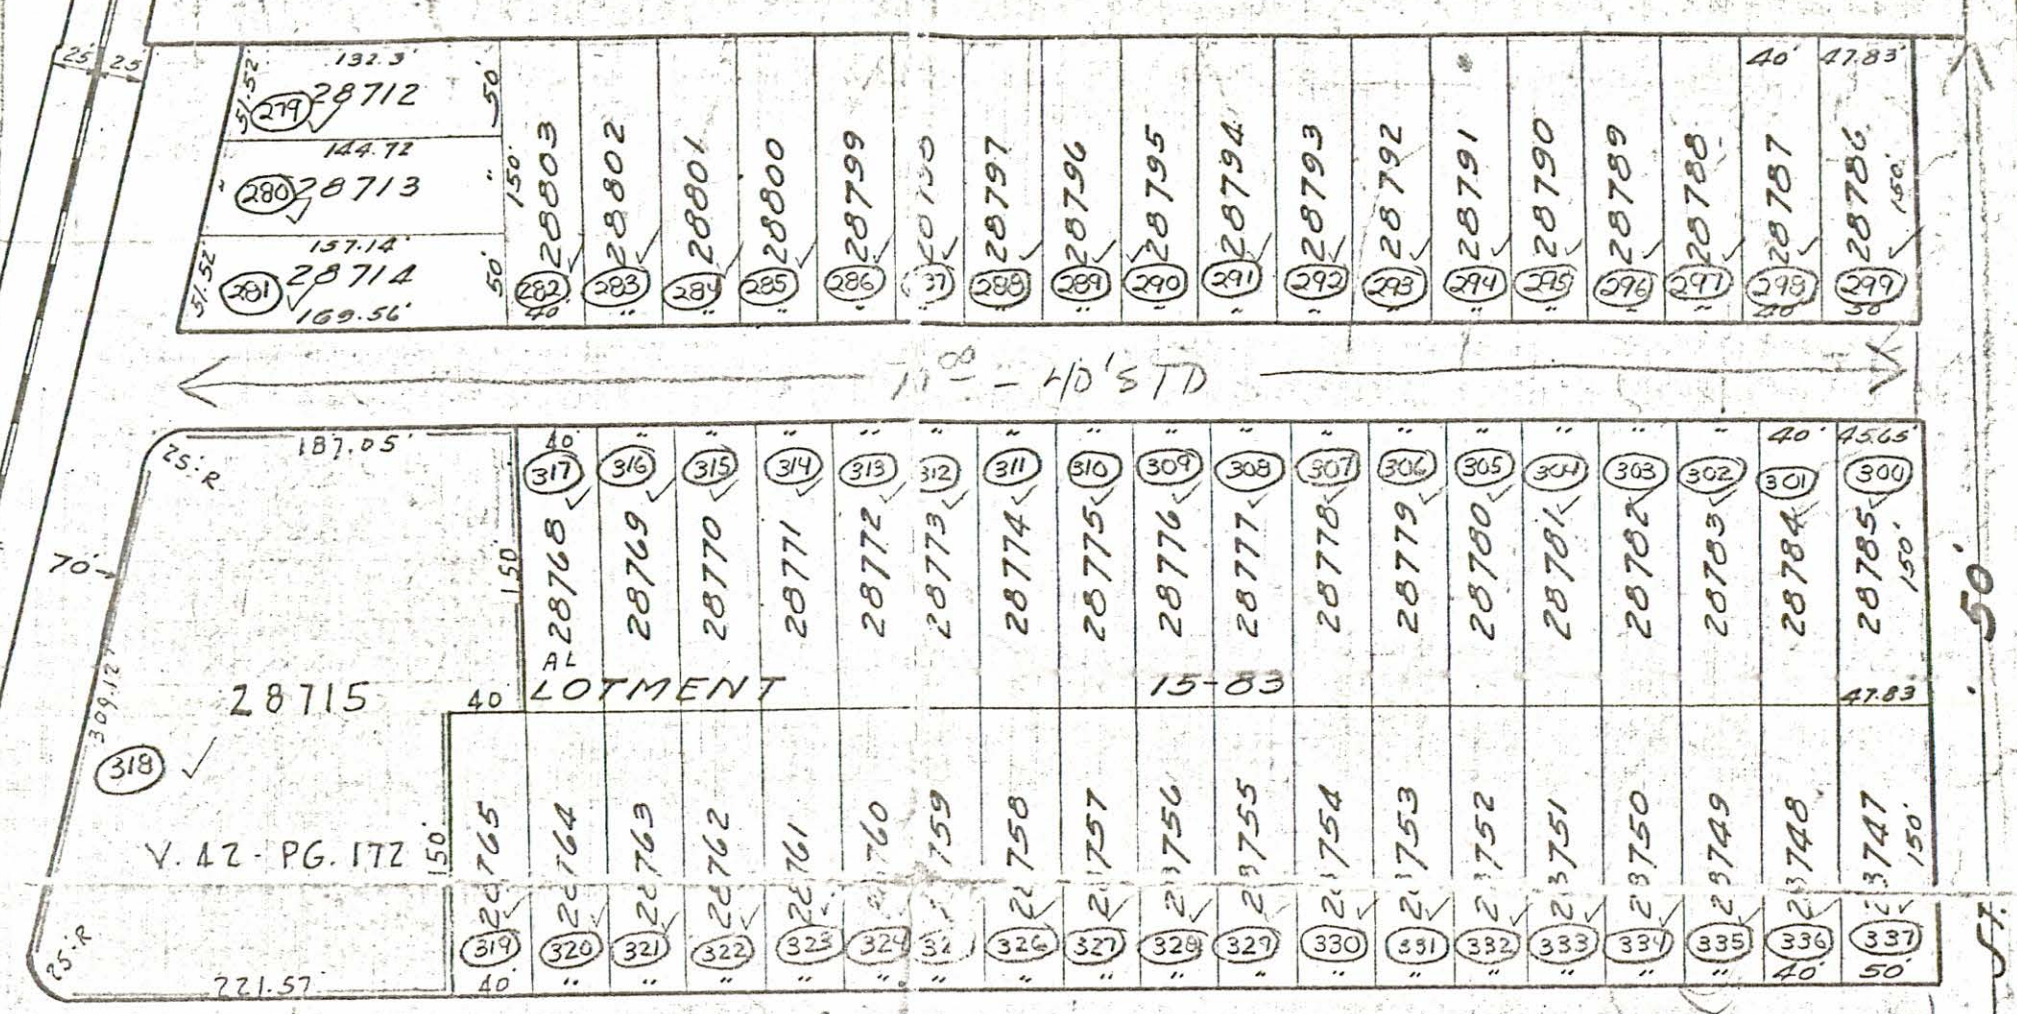 25' 25
132.3'
51.52'
279 28712
50'
144.72
280 28713
"
157.14'
51.52'
281 28714
50'
169.56'
150'
40' 47.83'
28803 28802 28801 28800 28799 28797 28796 28795 28794 28793 28792 28791 28790 28789 28788 28787 28786
150'
282 283 284 285 286 288 289 290 291 292 293 294 295 296 297 298 299
40 " " " " " " " " " " " " " " " 40' 50'
- 40'STD
187.05'
25'R
40' " " " " " " " " " " " " " " " 40' 45.65'
317 316 315 314 313 312 311 310 309 308 307 306 305 304 303 302 301 300
28768 28769 28770 28771 28772 28773 28774 28775 28776 28777 28778 28779 28780 28781 28782 28783 28784 28785
150'
150'
70'
50'
AL
LOTMENT 15-83
40'
47.83
309.12'
28715
318
V. 42 - PG. 172
150'
28765 28764 28763 28762 28761 760 759 28758 28757 28756 28755 28754 28753 28752 28751 28750 28749 28748 28747
150'
319 320 321 322 323 324 326 327 328 329 330 331 332 333 334 335 336 337
40' " " " " " " " " " " " " " " " " 40' 50'
25'R
221.57'
ST.